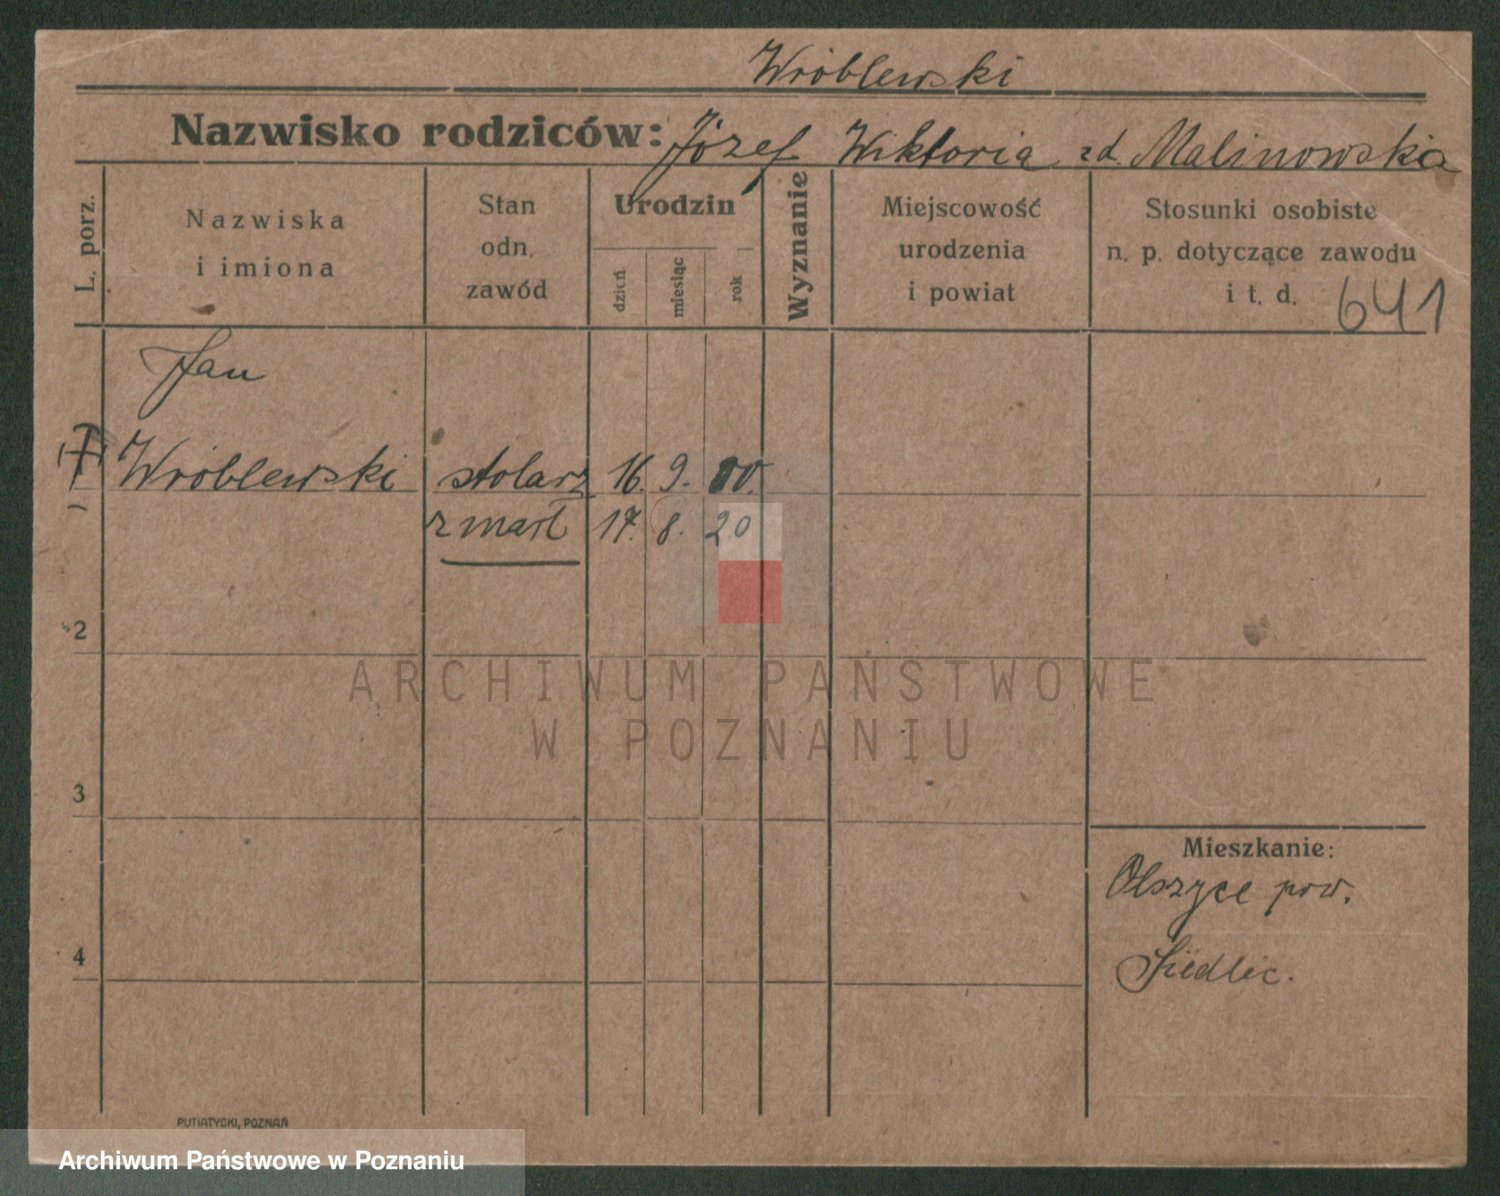 Wróblewski
Nazwisko rodziców: Józef Wiktoria zd. Malinowska
L. porz.
Nazwiska
i imiona
Stan
odn.
zawód
Urodzin
dzień
miesiąc
rok
Wyznanie
Miejscowość
urodzenia
i powiat
Stosunki osobiste
n. p. dotyczące zawodu
i t. d.
641
Jan
Wróblewski stolarz 16. 9. 00.
zmarł 17. 8. 20
2
3
4
ARCHIWUM PAŃSTWOWE
W POZNANIU
Mieszkanie:
Olszyce pow.
Siedlec.
PUTIATYCKI, POZNAŃ
Archiwum Państwowe w Poznaniu